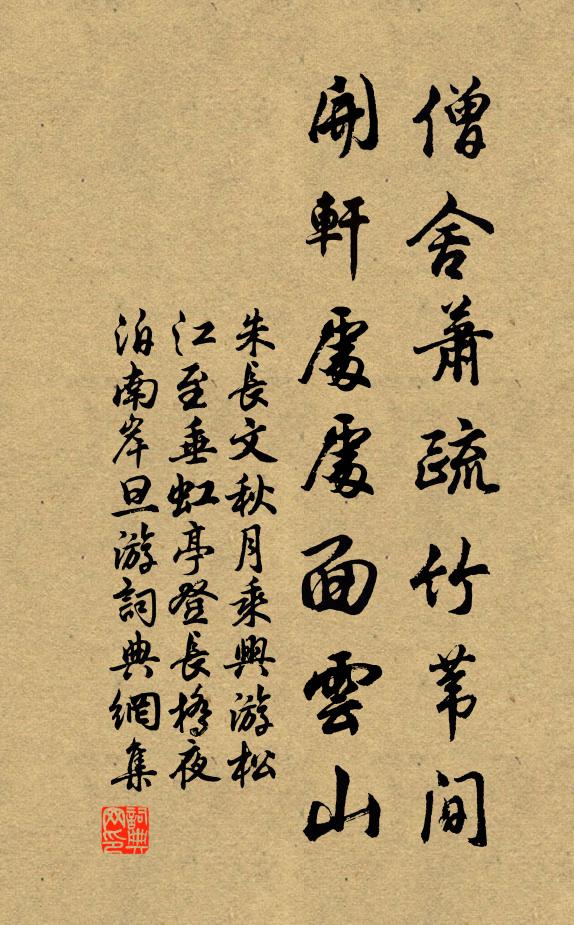 僧舍蕭疏竹苇间
開軒處處面雲山
朱長文秋月乘興游松
江至垂虹亭登長橋夜
泊南岸旦游詞典網集
詞典网印